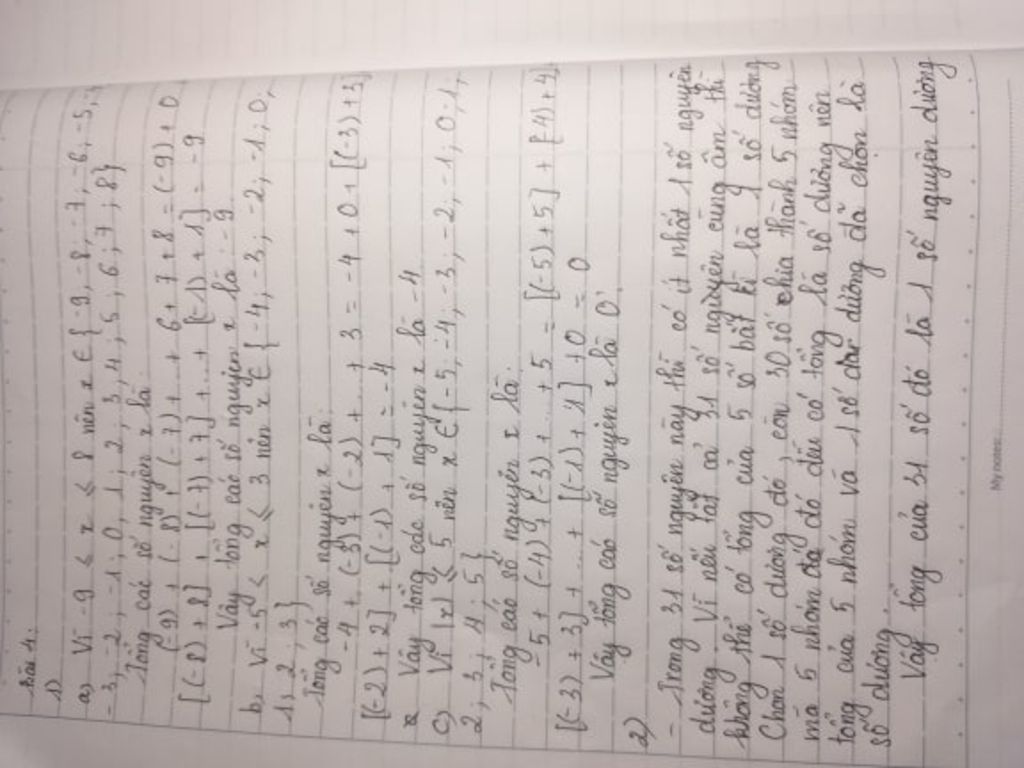 Câu 4:
1)
a) Vì -9 ≤ x ≤ 8 nên x ∈ {-9, -8, -7, -6, -5,
-3, -2, -1, 0, 1, 2, 3, 4, 5, 6, 7, 8}
Tổng các số nguyên x là
(-9) + (-8) + (-7) + ... + 6 + 7 + 8 = (-9) + 0
[(-8) + 8] + [(-7) + 7] + ... + [(-1) + 1] = -9
Vậy tổng các số nguyên x là: -9.
b, Vì -5 < x ≤ 3 nên x ∈ {-4, -3, -2, -1, 0,
1, 2, 3}
Tổng các số nguyên x là:
-4 + (-3) + (-2) + ... + 3 = -4 + 0 + [(-3) + 3]
[(-2) + 2] + [(-1) + 1] = -4
Vậy tổng các số nguyên x là -4
c) Vì |x| ≤ 5 nên x ∈ {-5, -4, -3, -2, -1, 0, 1,
2, 3, 4, 5}
Tổng các số nguyên x là:
-5 + (-4) + (-3) + ... + 5 = [(-5) + 5] + [(-4) + 4]
[(-3) + 3] + ... + [(-1) + 1] + 0 = 0
Vậy tổng các số nguyên x là 0.
2)
- Trong 31 số nguyên này thì có ít nhất 1 số nguyên
dương. Vì nếu tất cả 31 số nguyên cùng âm thì
không thể có tổng của 5 số bất kì là 1 số dương
Chọn 1 số dương đó, còn 30 số chia thành 5 nhóm
mà 5 nhóm đó đều có tổng là số dương nên
tổng của 5 nhóm và 1 số dương đã chọn là
số dương.
Vậy tổng của 31 số đó là 1 số nguyên dương
My notes: